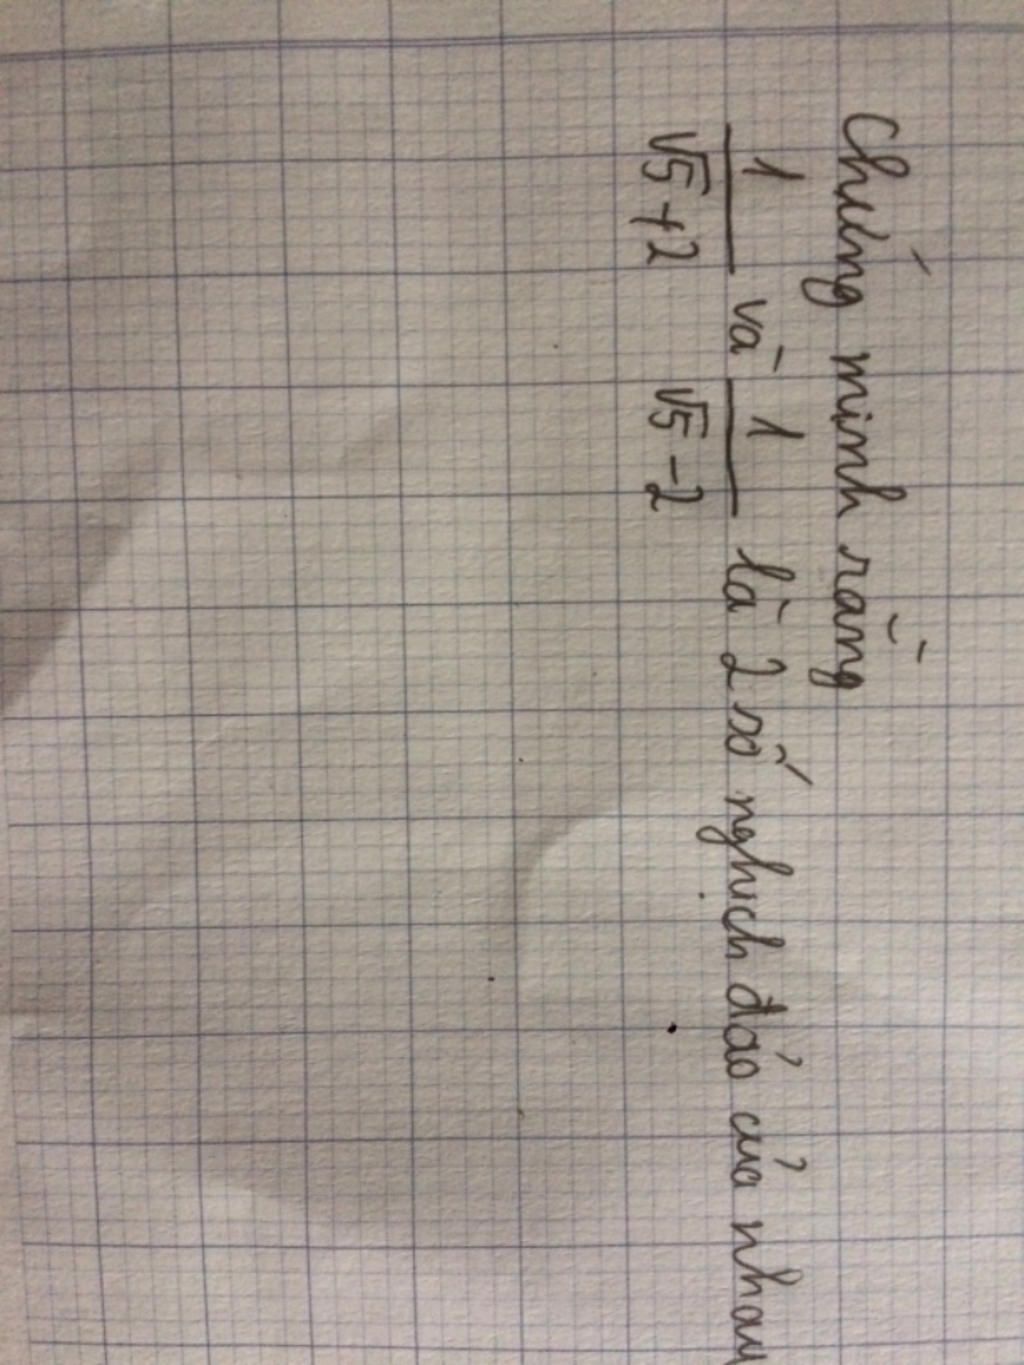 Chứng minh rằng
1/(√5+2) và 1/(√5-2) là 2 số nghịch đảo của nhau